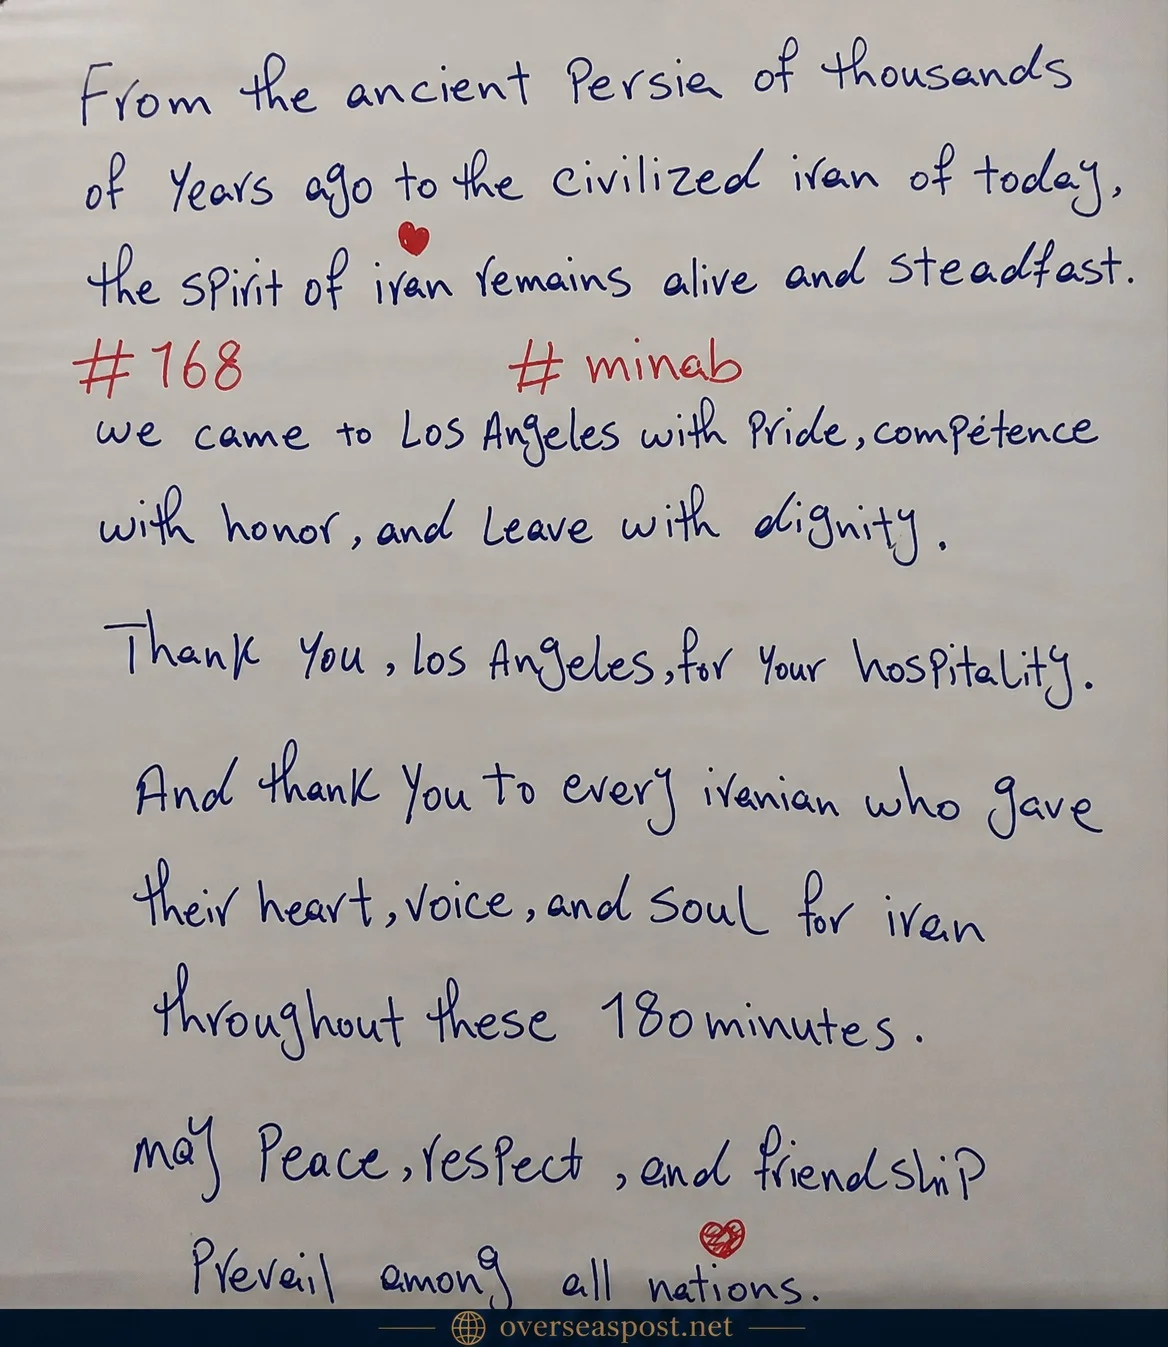 From the ancient Persia of thousands
of Years ago to the civilized iran of today,
the spirit of iran remains alive and steadfast.
#168 #minab
we came to Los Angeles with Pride, compétence
with honor, and Leave with dignity.
Thank You, Los Angeles, for Your hospitality.
And thank You to every iranian who gave
their heart, voice, and soul for iran
throughout these 180 minutes.
may Peace, respect, and friendship
Prevail among all nations.
overseaspost.net